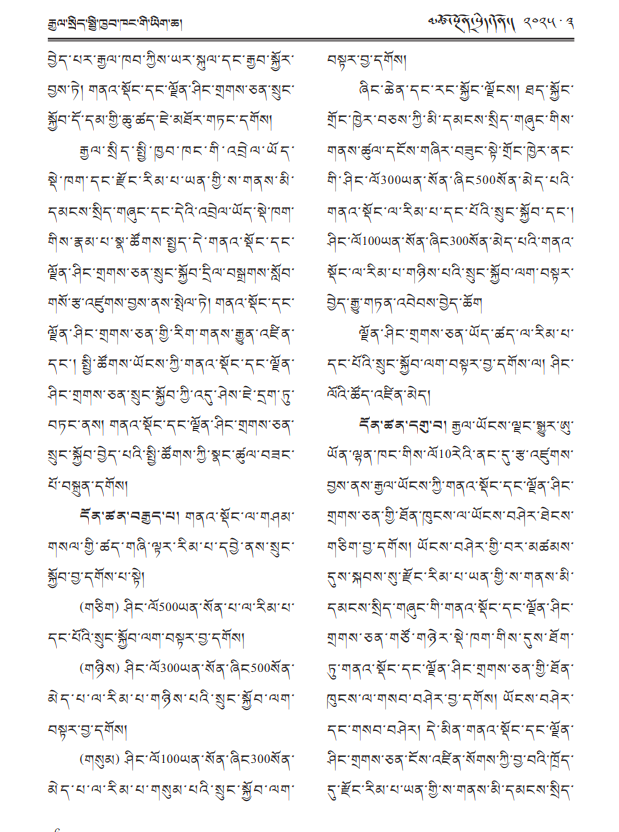 རྒྱལ་སྲིད་སྤྱི་ཁྱབ་ཁང་གི་ཡིག་ཆ།
༢༠༢༥ · ༣
བྱེད་པར་རྒྱལ་ཁབ་ཀྱིས་ཡར་སྐུལ་དང་རྒྱབ་སྐྱོར་
བྱས་ཏེ། གནའ་སྡོང་དང་ལྗོན་ཤིང་གྲགས་ཅན་སྲུང་
སྐྱོབ་དོ་དམ་གྱི་ཆུ་ཚད་ཇེ་མཐོར་གཏང་དགོས།
རྒྱལ་སྲིད་སྤྱི་ཁྱབ་ཁང་གི་འབྲེལ་ཡོད་
སྡེ་ཁག་དང་རྫོང་རིམ་པ་ཡན་གྱི་ས་གནས་མི་
དམངས་སྲིད་གཞུང་དང་དེའི་འབྲེལ་ཡོད་སྡེ་ཁག་
གིས་རྣམ་པ་སྣ་ཚོགས་སྤྱད་དེ་གནའ་སྡོང་དང་
ལྗོན་ཤིང་གྲགས་ཅན་སྲུང་སྐྱོབ་དྲིལ་བསྒྲགས་སློབ་
གསོ་རྩ་འཛུགས་བྱས་ནས་སྤེལ་ཏེ། གནའ་སྡོང་དང་
ལྗོན་ཤིང་གྲགས་ཅན་གྱི་རིག་གནས་རྒྱུན་འཛིན་
དང་། སྤྱི་ཚོགས་ཡོངས་ཀྱི་གནའ་སྡོང་དང་ལྗོན་
ཤིང་གྲགས་ཅན་སྲུང་སྐྱོབ་ཀྱི་འདུ་ཤེས་ཇེ་དྲག་ཏུ་
བཏང་ནས། གནའ་སྡོང་དང་ལྗོན་ཤིང་གྲགས་ཅན་
སྲུང་སྐྱོབ་བྱེད་པའི་སྤྱི་ཚོགས་ཀྱི་སྣང་ཚུལ་བཟང་
པོ་བསྐྲུན་དགོས།
དོན་ཚན་བརྒྱད་པ། གནའ་སྡོང་ལ་གཤམ་
གསལ་གྱི་ཚད་གཞི་ལྟར་རིམ་པ་དབྱེ་ནས་སྲུང་
སྐྱོབ་བྱ་དགོས་པ་སྟེ།
(གཅིག) ཤིང་ལོ500ཡན་སོན་པ་ལ་རིམ་པ་
དང་པོའི་སྲུང་སྐྱོབ་ལག་བསྟར་བྱ་དགོས།
(གཉིས) ཤིང་ལོ300ཡན་སོན་ཞིང500སོན་
མེད་པ་ལ་རིམ་པ་གཉིས་པའི་སྲུང་སྐྱོབ་ལག་
བསྟར་བྱ་དགོས།
(གསུམ) ཤིང་ལོ100ཡན་སོན་ཞིང300སོན་
མེད་པ་ལ་རིམ་པ་གསུམ་པའི་སྲུང་སྐྱོབ་ལག་
བསྟར་བྱ་དགོས།
ཞིང་ཆེན་དང་རང་སྐྱོང་ལྗོངས། ཐད་སྐྱོང་
གྲོང་ཁྱེར་བཅས་ཀྱི་མི་དམངས་སྲིད་གཞུང་གིས་
གནས་ཚུལ་དངོས་གཞིར་བཟུང་སྟེ་གྲོང་ཁྱེར་ནང་
གི་ཤིང་ལོ300ཡན་སོན་ཞིང500སོན་མེད་པའི་
གནའ་སྡོང་ལ་རིམ་པ་དང་པོའི་སྲུང་སྐྱོབ་དང་།
ཤིང་ལོ100ཡན་སོན་ཞིང300སོན་མེད་པའི་གནའ་
སྡོང་ལ་རིམ་པ་གཉིས་པའི་སྲུང་སྐྱོབ་ལག་བསྟར་
བྱེད་རྒྱུ་གཏན་འབེབས་བྱེད་ཆོག
ལྗོན་ཤིང་གྲགས་ཅན་ཡོད་ཚད་ལ་རིམ་པ་
དང་པོའི་སྲུང་སྐྱོབ་ལག་བསྟར་བྱ་དགོས་ལ། ཤིང་
ལོའི་ཚོད་འཛིན་མེད།
དོན་ཚན་དགུ་བ། རྒྱལ་ཡོངས་ལྗང་སྒྱུར་ཨུ་
ཡོན་ལྷན་ཁང་གིས་ལོ10རེའི་ནང་དུ་རྩ་འཛུགས་
བྱས་ནས་རྒྱལ་ཡོངས་ཀྱི་གནའ་སྡོང་དང་ལྗོན་ཤིང་
གྲགས་ཅན་གྱི་ཐོན་ཁུངས་ལ་ཡོངས་བཤེར་ཐེངས་
གཅིག་བྱ་དགོས། ཡོངས་བཤེར་གྱི་བར་མཚམས་
དུས་སྐབས་སུ་རྫོང་རིམ་པ་ཡན་གྱི་ས་གནས་མི་
དམངས་སྲིད་གཞུང་གི་གནའ་སྡོང་དང་ལྗོན་ཤིང་
གྲགས་ཅན་གཙོ་གཉེར་སྡེ་ཁག་གིས་དུས་ཐོག་
ཏུ་གནའ་སྡོང་དང་ལྗོན་ཤིང་གྲགས་ཅན་གྱི་ཐོན་
ཁུངས་ལ་གསབ་བཤེར་བྱ་དགོས། ཡོངས་བཤེར་
དང་གསབ་བཤེར། དེ་མིན་གནའ་སྡོང་དང་ལྗོན་
ཤིང་གྲགས་ཅན་ངོས་འཛིན་སོགས་ཀྱི་བྱ་བའི་ཁྲོད་
དུ་རྫོང་རིམ་པ་ཡན་གྱི་ས་གནས་མི་དམངས་སྲིད་